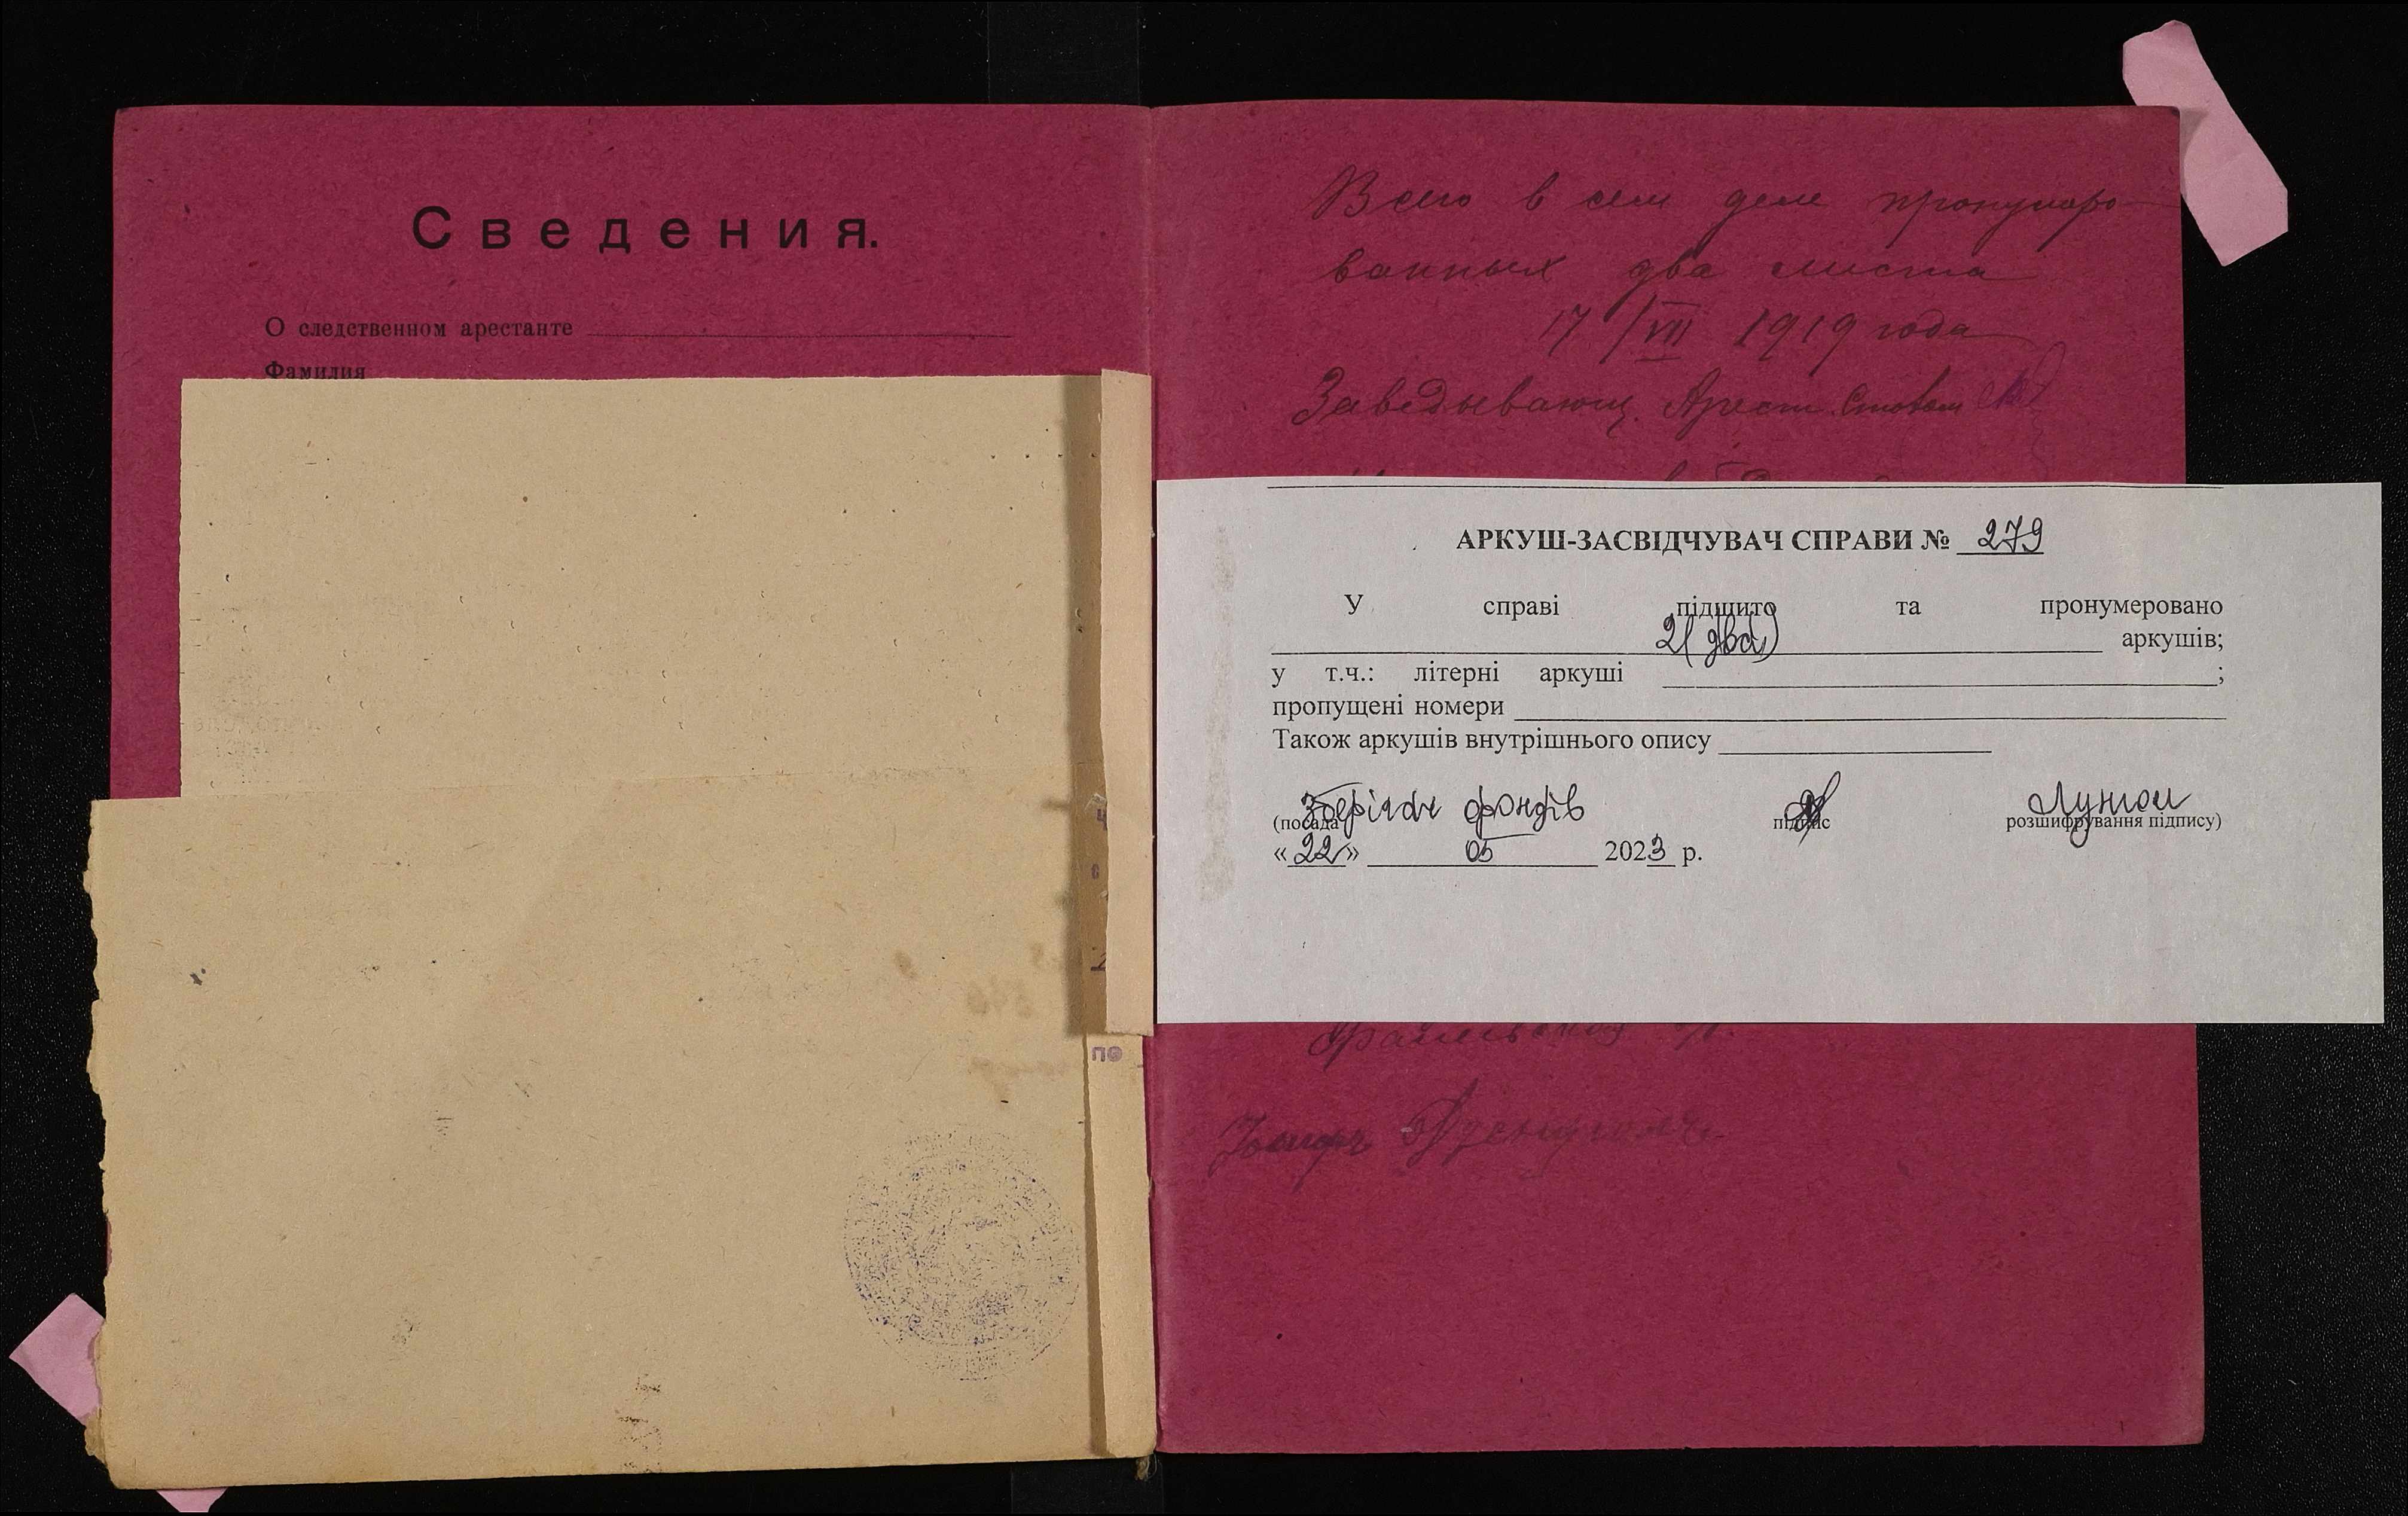 Сведения.
О следственном арестанте
Фамилия
по
Всего в сем деле пронумеро-
ванных два листа
17/VII 1919 года
Заведывающ. Арест. Столом
АРКУШ-ЗАСВІДЧУВАЧ СПРАВИ № 279
У справі підшито та пронумеровано
2(два) аркушів;
у т.ч.: літерні аркуші ;
пропущені номери
Також аркушів внутрішнього опису
Зберігач фондів
(посада підпис розшифрування підпису)
«22» 05 2023 р.